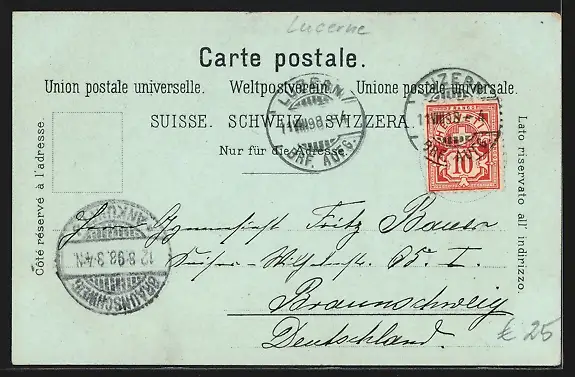 Lucerne
Carte postale.
Union postale universelle. Weltpostverein. Unione postale universale.
SUISSE. SCHWEIZ. SVIZZERA.
Nur für die Adresse.
Côté réservé à l'adresse.
Lato riservato all' indirizzo.
LUZERN
11 VIII 98
BRF. AUFG.
LUZERN
11 VIII 98
BRF. AUFG.
FRANCO
10
ANKUNFT
12.8.98. 3-4.N.
BRAUNSCHWEIG
Herrn Gymnasiast Fritz Bauer
Kaiser-Wilhelmstr. 65. I.
Braunschweig
Deutschland.
€ 25